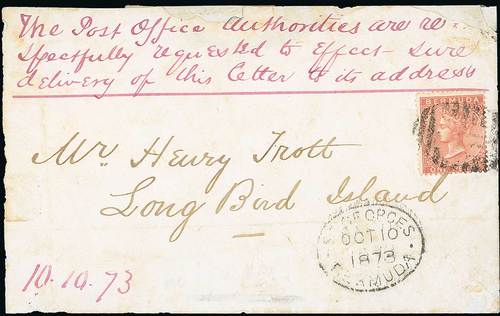 The Post Office Authorities are re-
spectfully requested to effect sure
delivery of this letter to its address
BERMUDA
Mr. Henry Trott
Long Bird Island
ST GEORGES
OCT 10
1873
BERMUDA
10.10.73